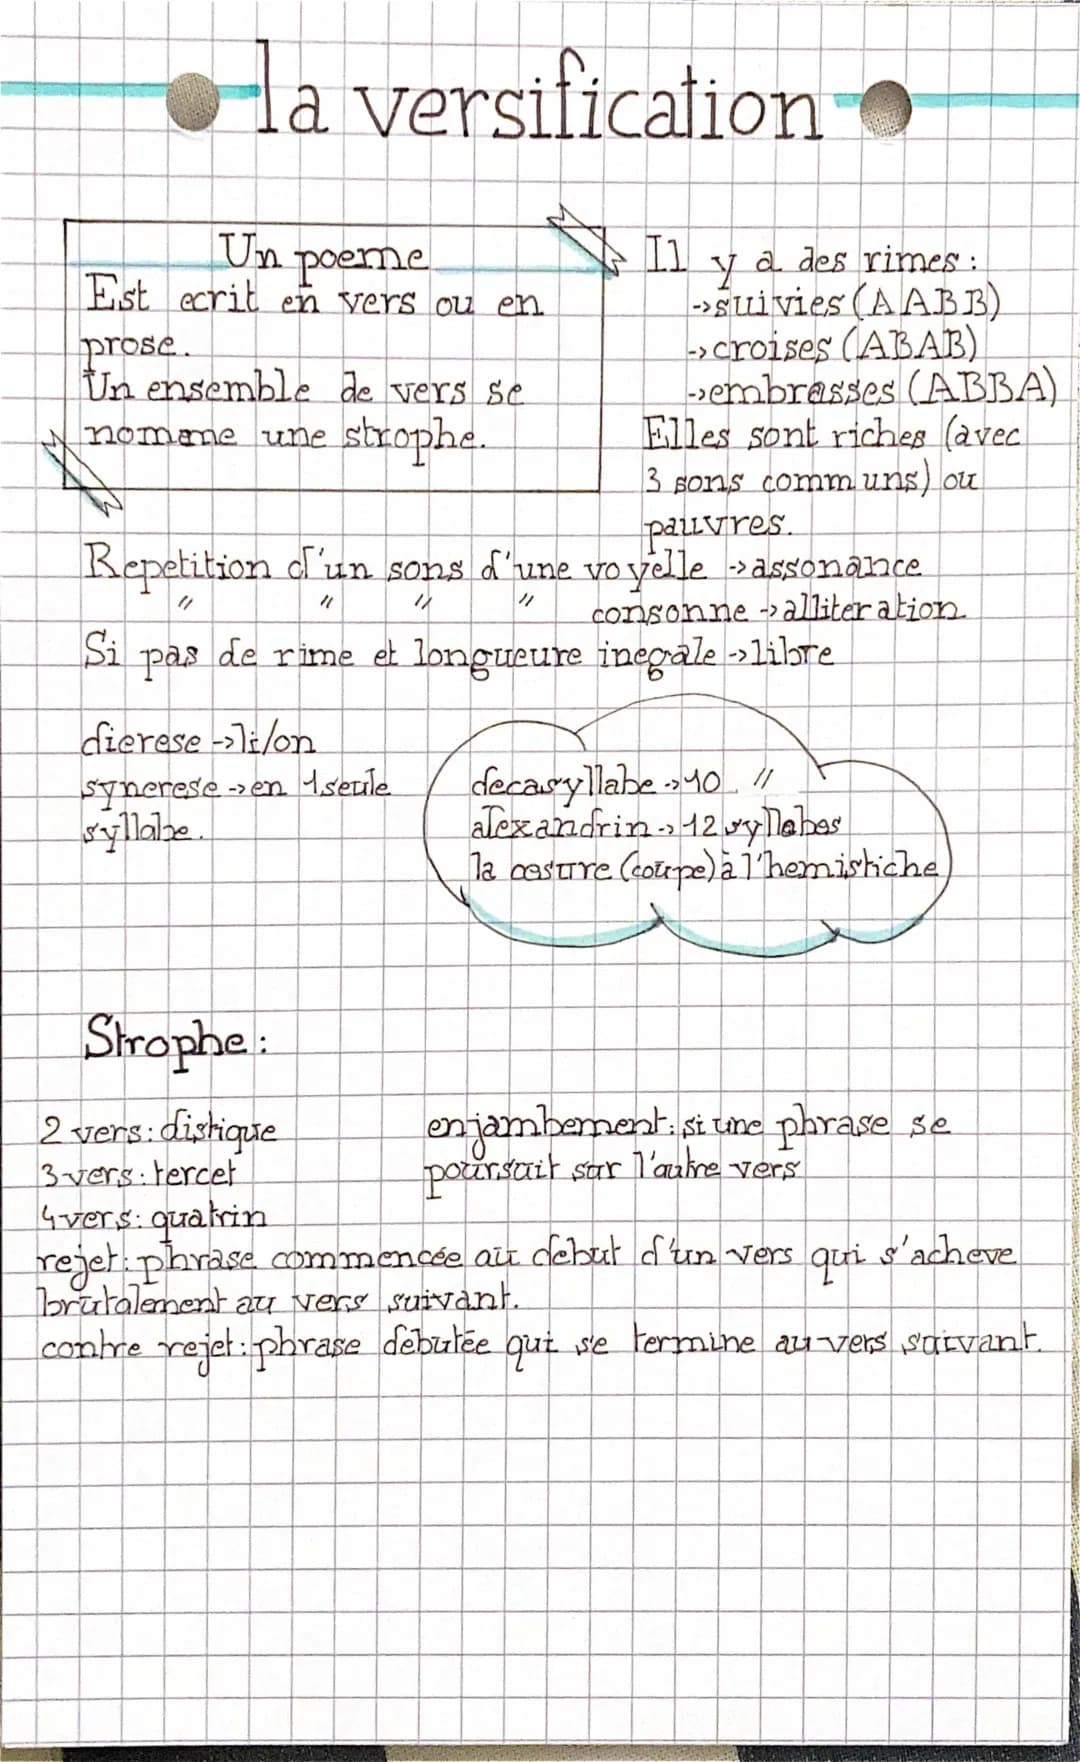 la versification
Un poeme
Est ecrit en vers ou en
prose.
Un ensemble de vers se
nomme une strophe.
Il y a des rimes :
->suivies (AABB)
->croises (ABAB)
->embrasses (ABBA)
Elles sont riches (avec
3 sons communs) ou
pauvres.
Repetition d'un sons d'une voyelle ->assonance
" " " " consonne ->alliteration
Si pas de rime et longueure inegale ->libre
dierese ->li/on
synerese ->en 1 seule
syllabe.
decasyllabe ->10 "
alexandrin -> 12 syllabes
la cesure (coupe) à l'hemistiche
Strophe :
2 vers : distique
3 vers : tercet
4 vers : quatrin
enjambement : si une phrase se
poursuit sur l'autre vers
rejet : phrase commencée au debut d'un vers qui s'acheve
brutalement au vers suivant.
contre rejet : phrase debutée qui se termine au vers suivant.